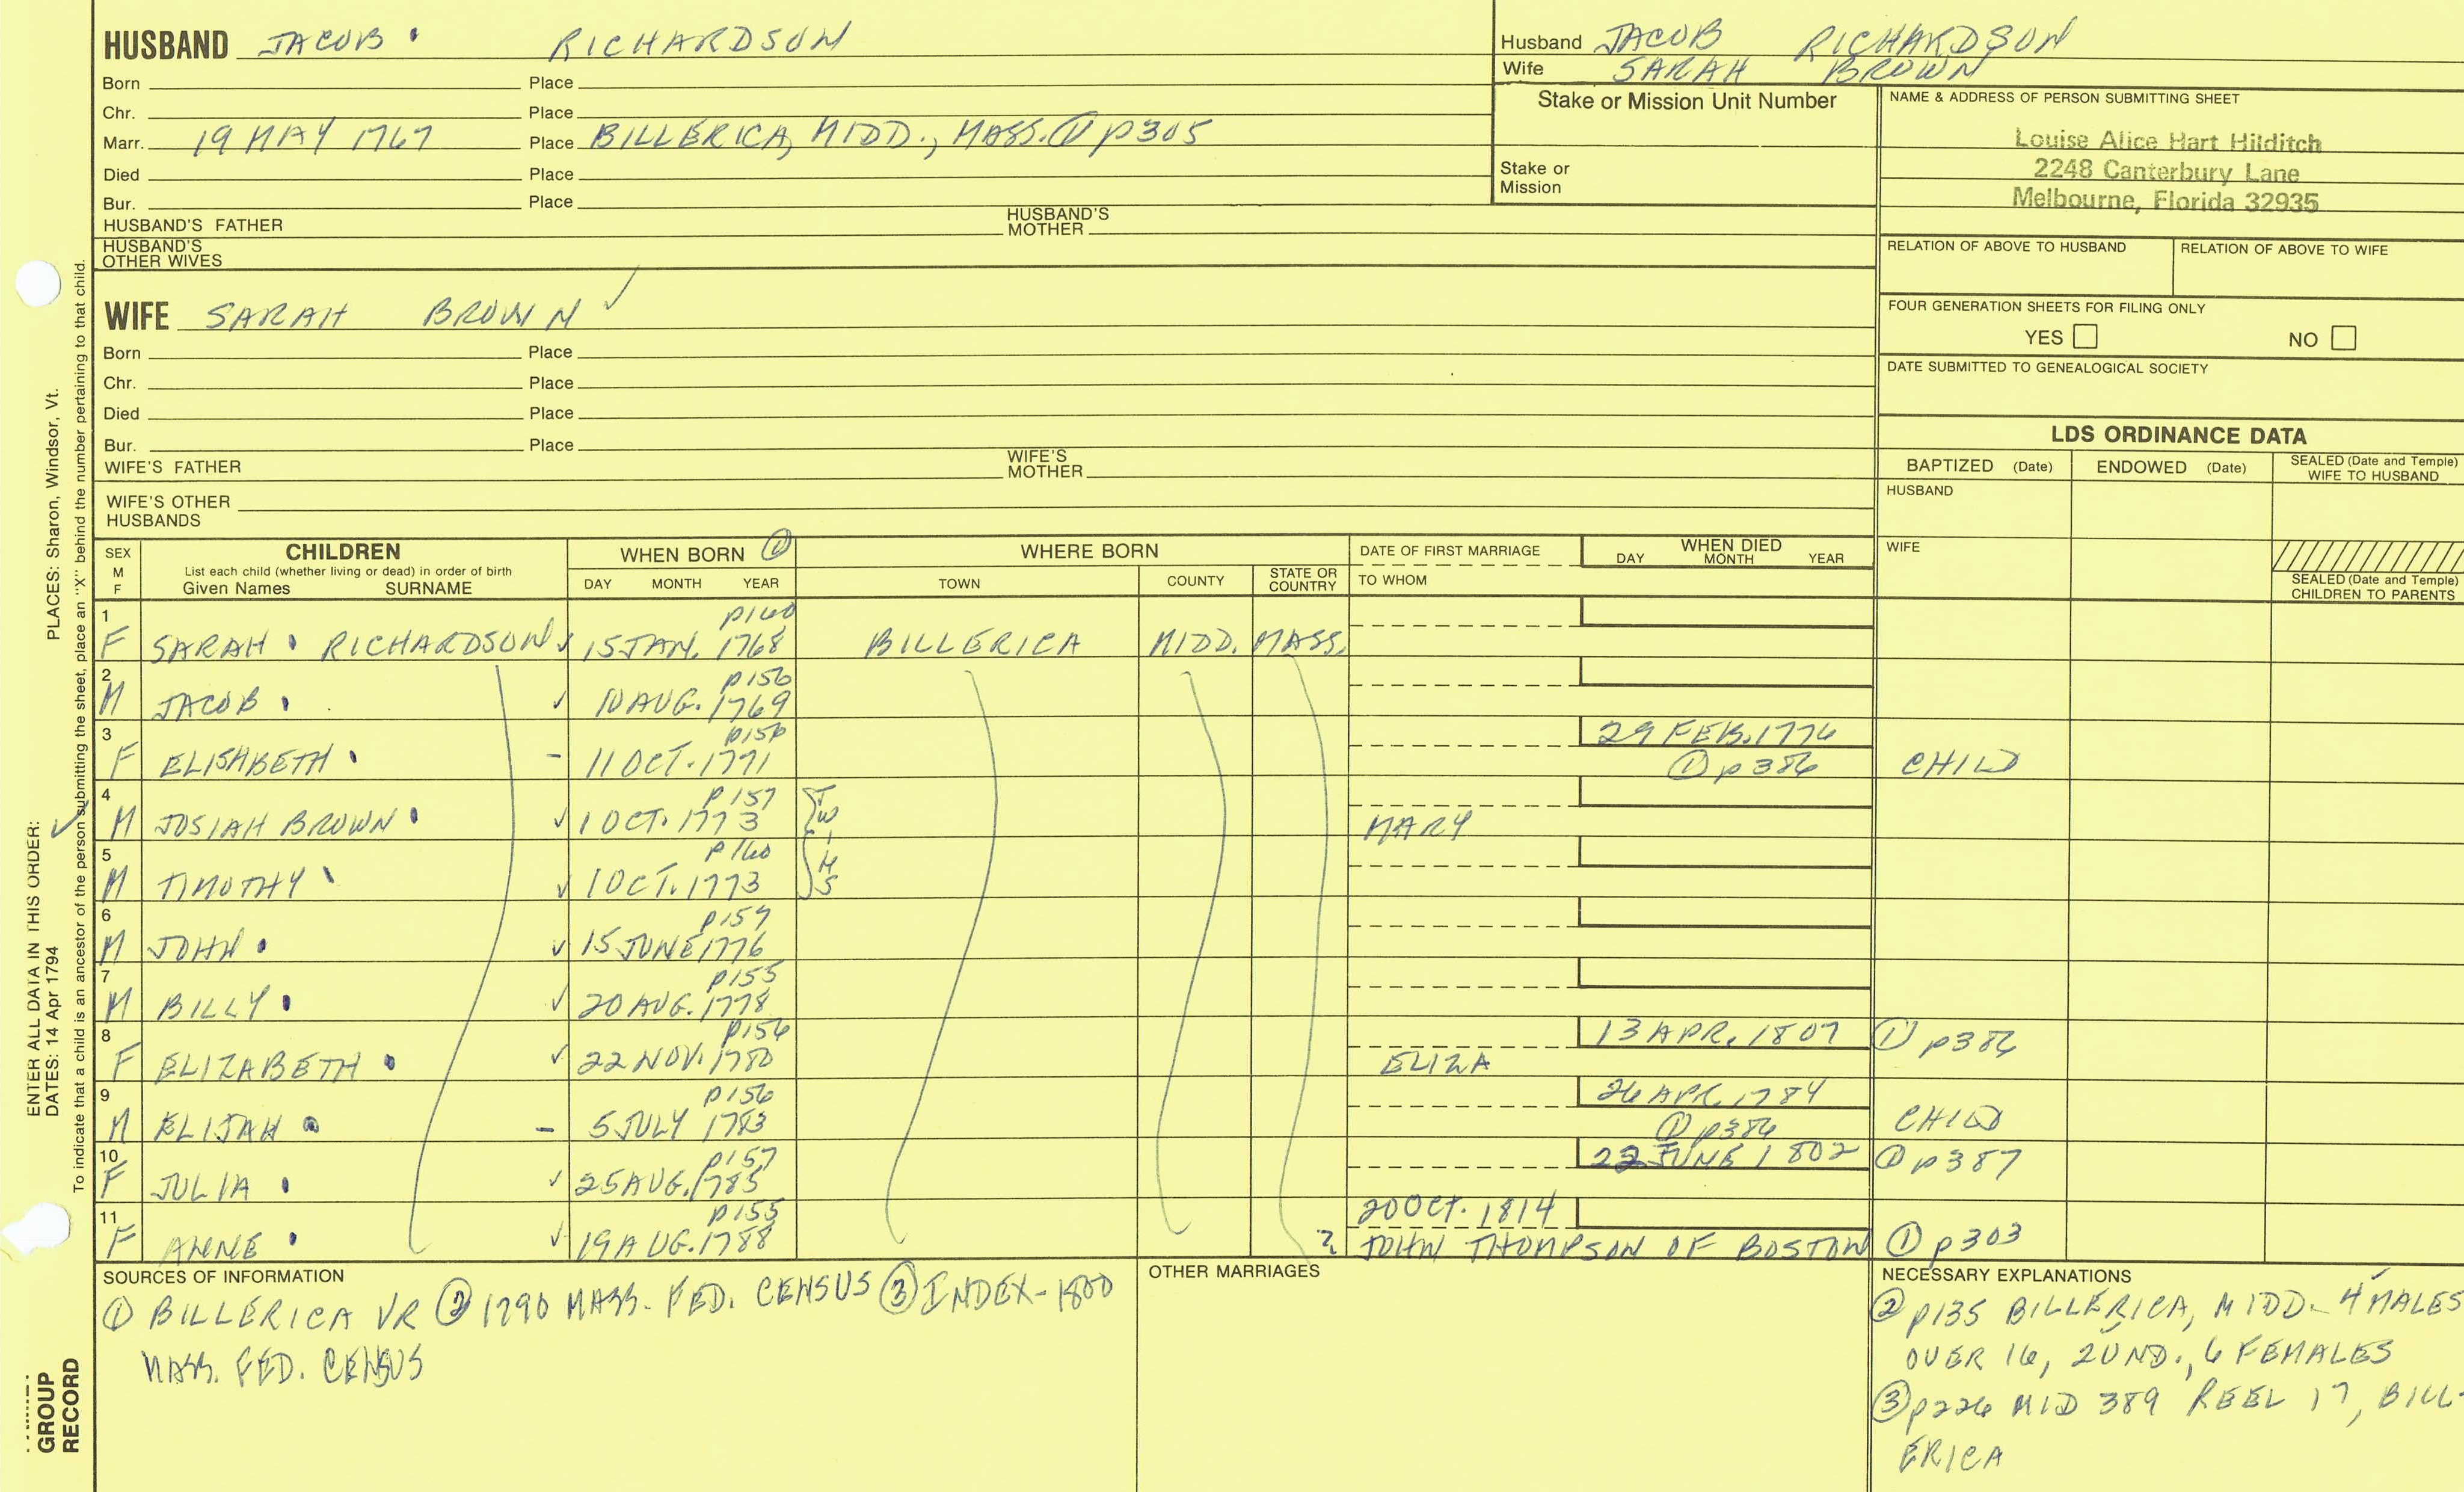 HUSBAND JACOB RICHARDSON
Born Place
Chr. Place
Marr. 19 MAY 1767 Place BILLERICA, MIDD., MASS. ① p305
Died Place
Bur. Place
HUSBAND'S FATHER HUSBAND'S MOTHER
HUSBAND'S OTHER WIVES
Husband JACOB RICHARDSON
Wife SARAH BROWN
Stake or Mission Unit Number
Stake or Mission
NAME & ADDRESS OF PERSON SUBMITTING SHEET
Louise Alice Hart Hilditch
2248 Canterbury Lane
Melbourne, Florida 32935
RELATION OF ABOVE TO HUSBAND RELATION OF ABOVE TO WIFE
FOUR GENERATION SHEETS FOR FILING ONLY
YES NO
DATE SUBMITTED TO GENEALOGICAL SOCIETY
WIFE SARAH BROWN ✓
Born Place
Chr. Place
Died Place
Bur. Place
WIFE'S FATHER WIFE'S MOTHER
WIFE'S OTHER HUSBANDS
LDS ORDINANCE DATA
BAPTIZED (Date) ENDOWED (Date) SEALED (Date and Temple) WIFE TO HUSBAND
HUSBAND
WIFE
SEALED (Date and Temple) CHILDREN TO PARENTS
SEX M F
CHILDREN
List each child (whether living or dead) in order of birth
Given Names SURNAME
WHEN BORN ①
DAY MONTH YEAR
WHERE BORN
TOWN COUNTY STATE OR COUNTRY
DATE OF FIRST MARRIAGE
TO WHOM
WHEN DIED
DAY MONTH YEAR
1 p160
F SARAH RICHARDSON ✓ 15 JAN. 1768 BILLERICA MIDD. MASS.
2 p156
M JACOB ✓ 10 AUG. 1769
3 p156 29 FEB. 1776
F ELISABETH - 11 OCT. 1771 ① p386 CHILD
4 p157
M JOSIAH BROWN ✓ 1 OCT. 1773 TWINS MARY
5 p160
M TIMOTHY ✓ 1 OCT. 1773
6 p157
M JOHN ✓ 15 JUNE 1776
7 p155
M BILLY ✓ 20 AUG. 1778
8 p156 13 APR. 1807 ① p386
F ELIZABETH ✓ 22 NOV. 1780 ELIZA
9 p156 26 APR. 1784
M ELIJAH - 5 JULY 1783 ① p386 CHILD
10 p157 22 JUNE 1802 ① p387
F JULIA ✓ 25 AUG. 1785
11 p155 20 OCT. 1814
F ANNE ✓ 19 AUG. 1788 ? JOHN THOMPSON OF BOSTON ① p303
SOURCES OF INFORMATION
① BILLERICA VR ② 1790 MASS. FED. CENSUS ③ INDEX-1800
MASS. FED. CENSUS
OTHER MARRIAGES
NECESSARY EXPLANATIONS
② p135 BILLERICA, MIDD. 4 MALES
OVER 16, 2 UND., 6 FEMALES
③ p226 MID 389 REEL 17, BILL-
ERICA
ENTER ALL DATA IN THIS ORDER:
DATES: 14 Apr 1794 PLACES: Sharon, Windsor, Vt.
To indicate that a child is an ancestor of the person submitting the sheet, place an "X" behind the number pertaining to that child.
GROUP
RECORD